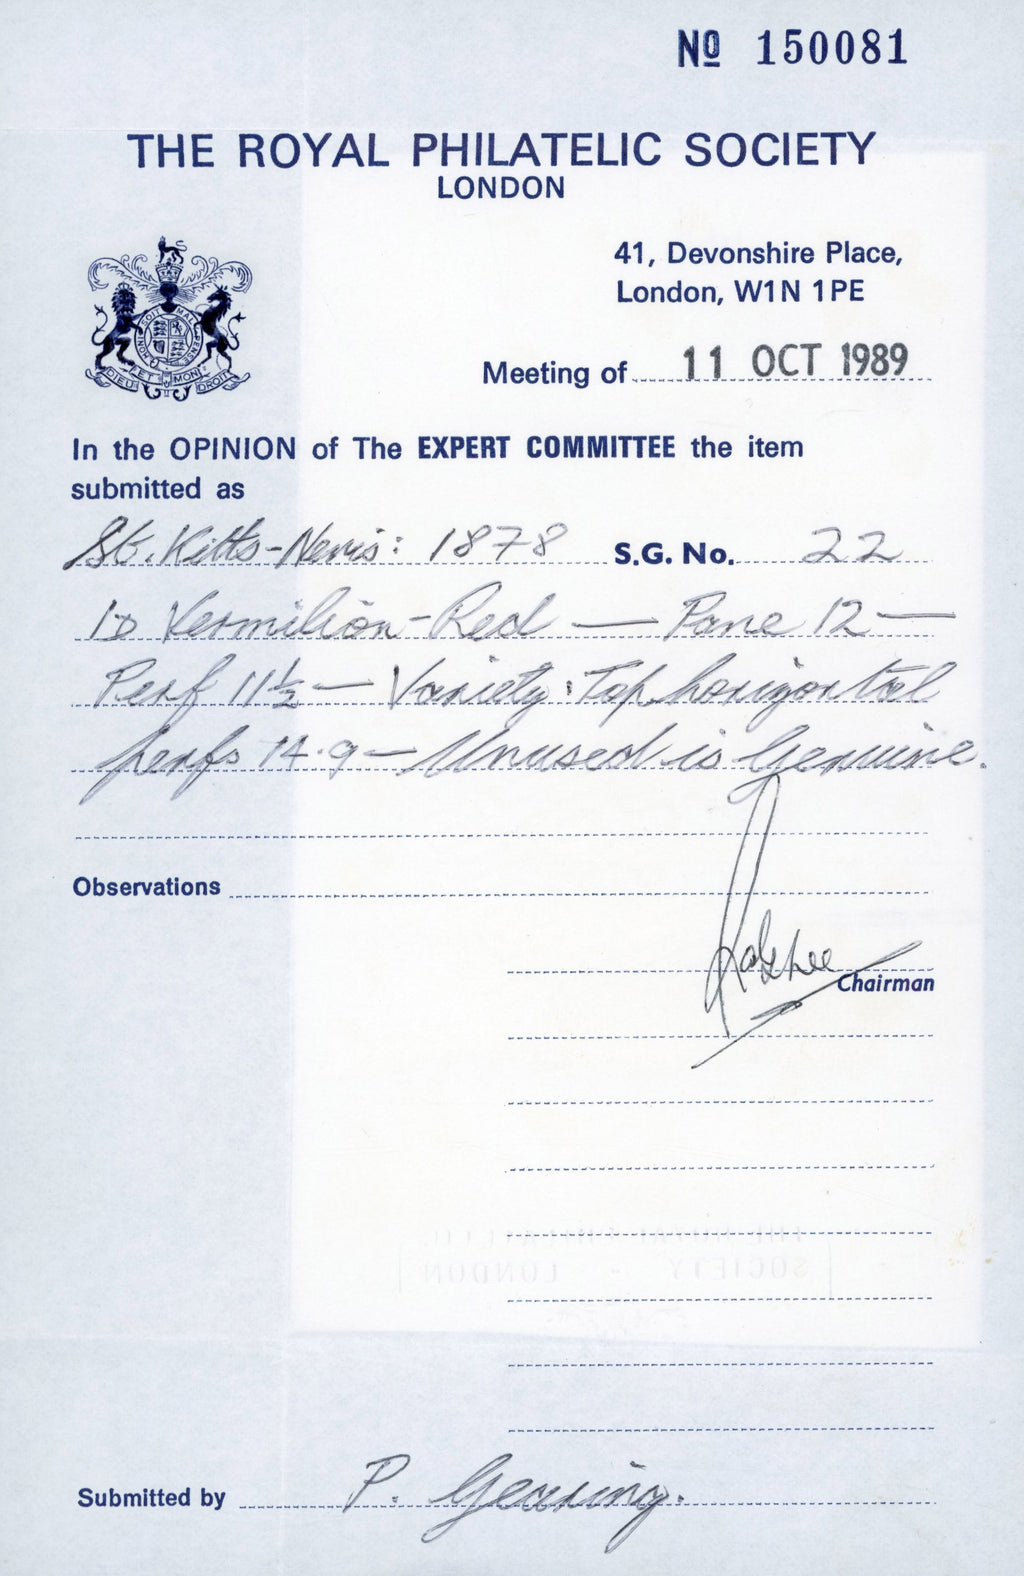 Nº 150081
THE ROYAL PHILATELIC SOCIETY
LONDON
41, Devonshire Place,
London, W1N 1PE
Meeting of 11 OCT 1989
In the OPINION of The EXPERT COMMITTEE the item
submitted as
St. Kitts-Nevis: 1878 S.G. No. 22
1D Vermilion-Red — Pane 12 —
Perf 11½ — Variety: Top horizontal
perfs 14.9 — Unused is Genuine.
Observations
Chairman
THE ROYAL PHILATELIC
SOCIETY - LONDON
Submitted by P. Gearing.